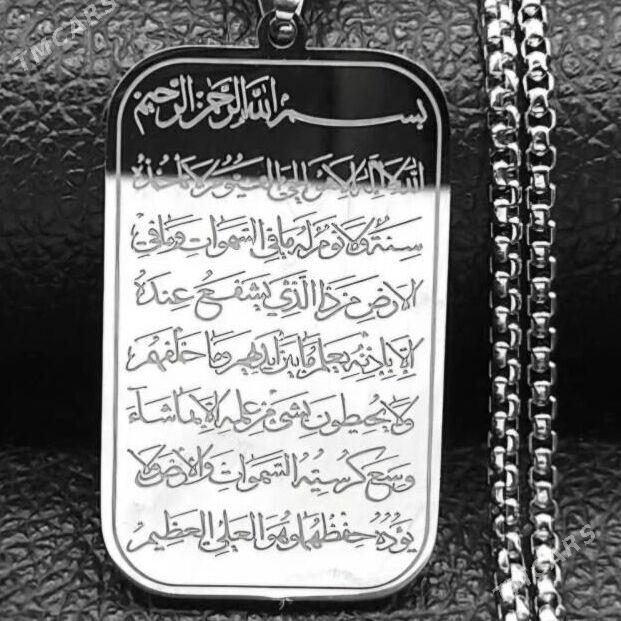 بسم الله الرحمن الرحيم
الله لا إله إلا هو الحي القيوم لا تأخذه
سنة ولا نوم له ما في السموات وما في
الأرض من ذا الذي يشفع عنده
إلا بإذنه يعلم ما بين أيديهم وما خلفهم
ولا يحيطون بشيء من علمه إلا بما شاء
وسع كرسيه السموات والأرض ولا
يؤده حفظهما وهو العلي العظيم
TMCARS
TMCARS